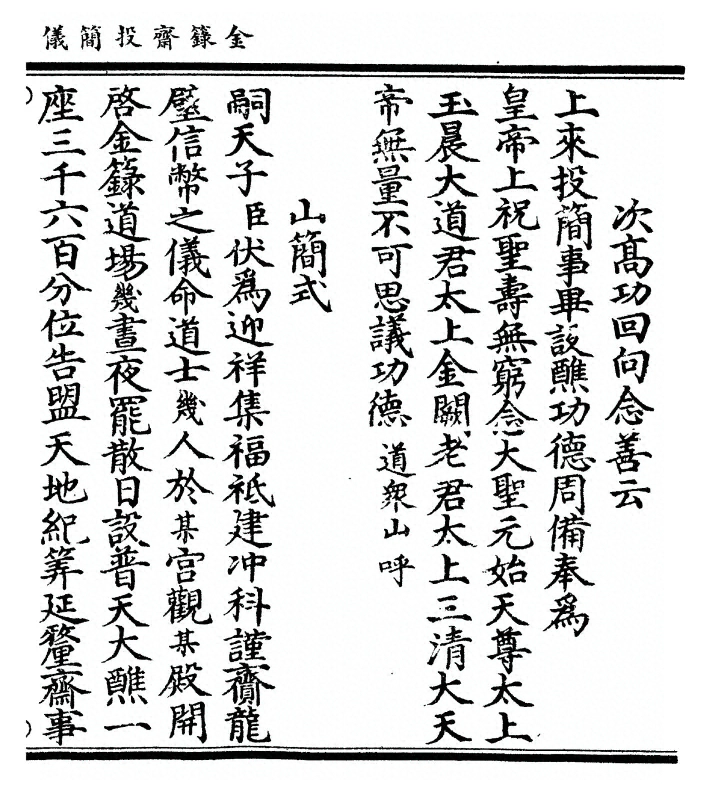 金籙齋投簡儀
次高功回向念善云
上來投簡事畢設醮功德周備奉為
皇帝上祝聖壽無窮念大聖元始天尊太上
玉晨大道君太上金闕老君太上三清大天
帝無量不可思議功德道衆山呼
山簡式
嗣天子臣伏爲迎祥集福祗建冲科謹齎龍
璧信幣之儀命道士幾人於某宫觀某殿開
啓金籙道場幾晝夜罷散日設普天大醮一
座三千六百分位告盟天地紀筭延釐齋事